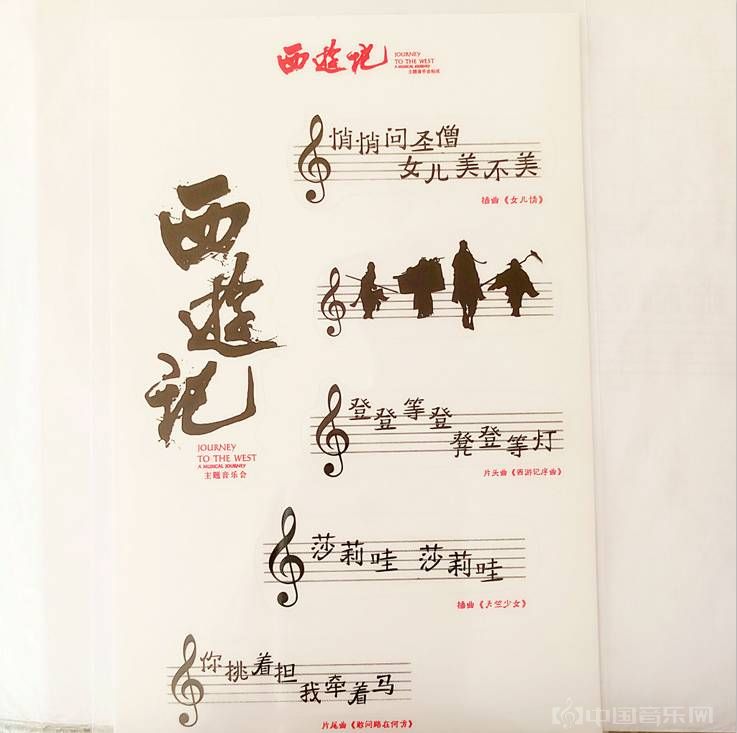 西遊记
JOURNEY
TO THE WEST
A MUSICAL JOURNEY
主题音乐会贴纸
悄悄问圣僧
女儿美不美
插曲《女儿情》
西遊记
JOURNEY
TO THE WEST
A MUSICAL JOURNEY
主题音乐会
登登等登
凳登等灯
片头曲《西游记序曲》
莎莉哇 莎莉哇
插曲《天竺少女》
你挑着担
我牵着马
片尾曲《敢问路在何方》
中国音乐网